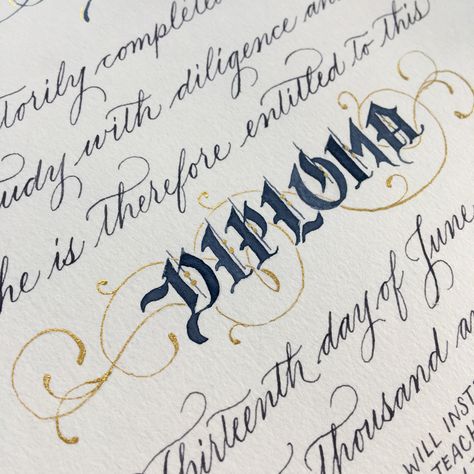 torily completed
udy with diligence an
he is therefore entitled to this
DIPLOMA
Thirteenth day of June
Thousand a
WILL INST
TEACH